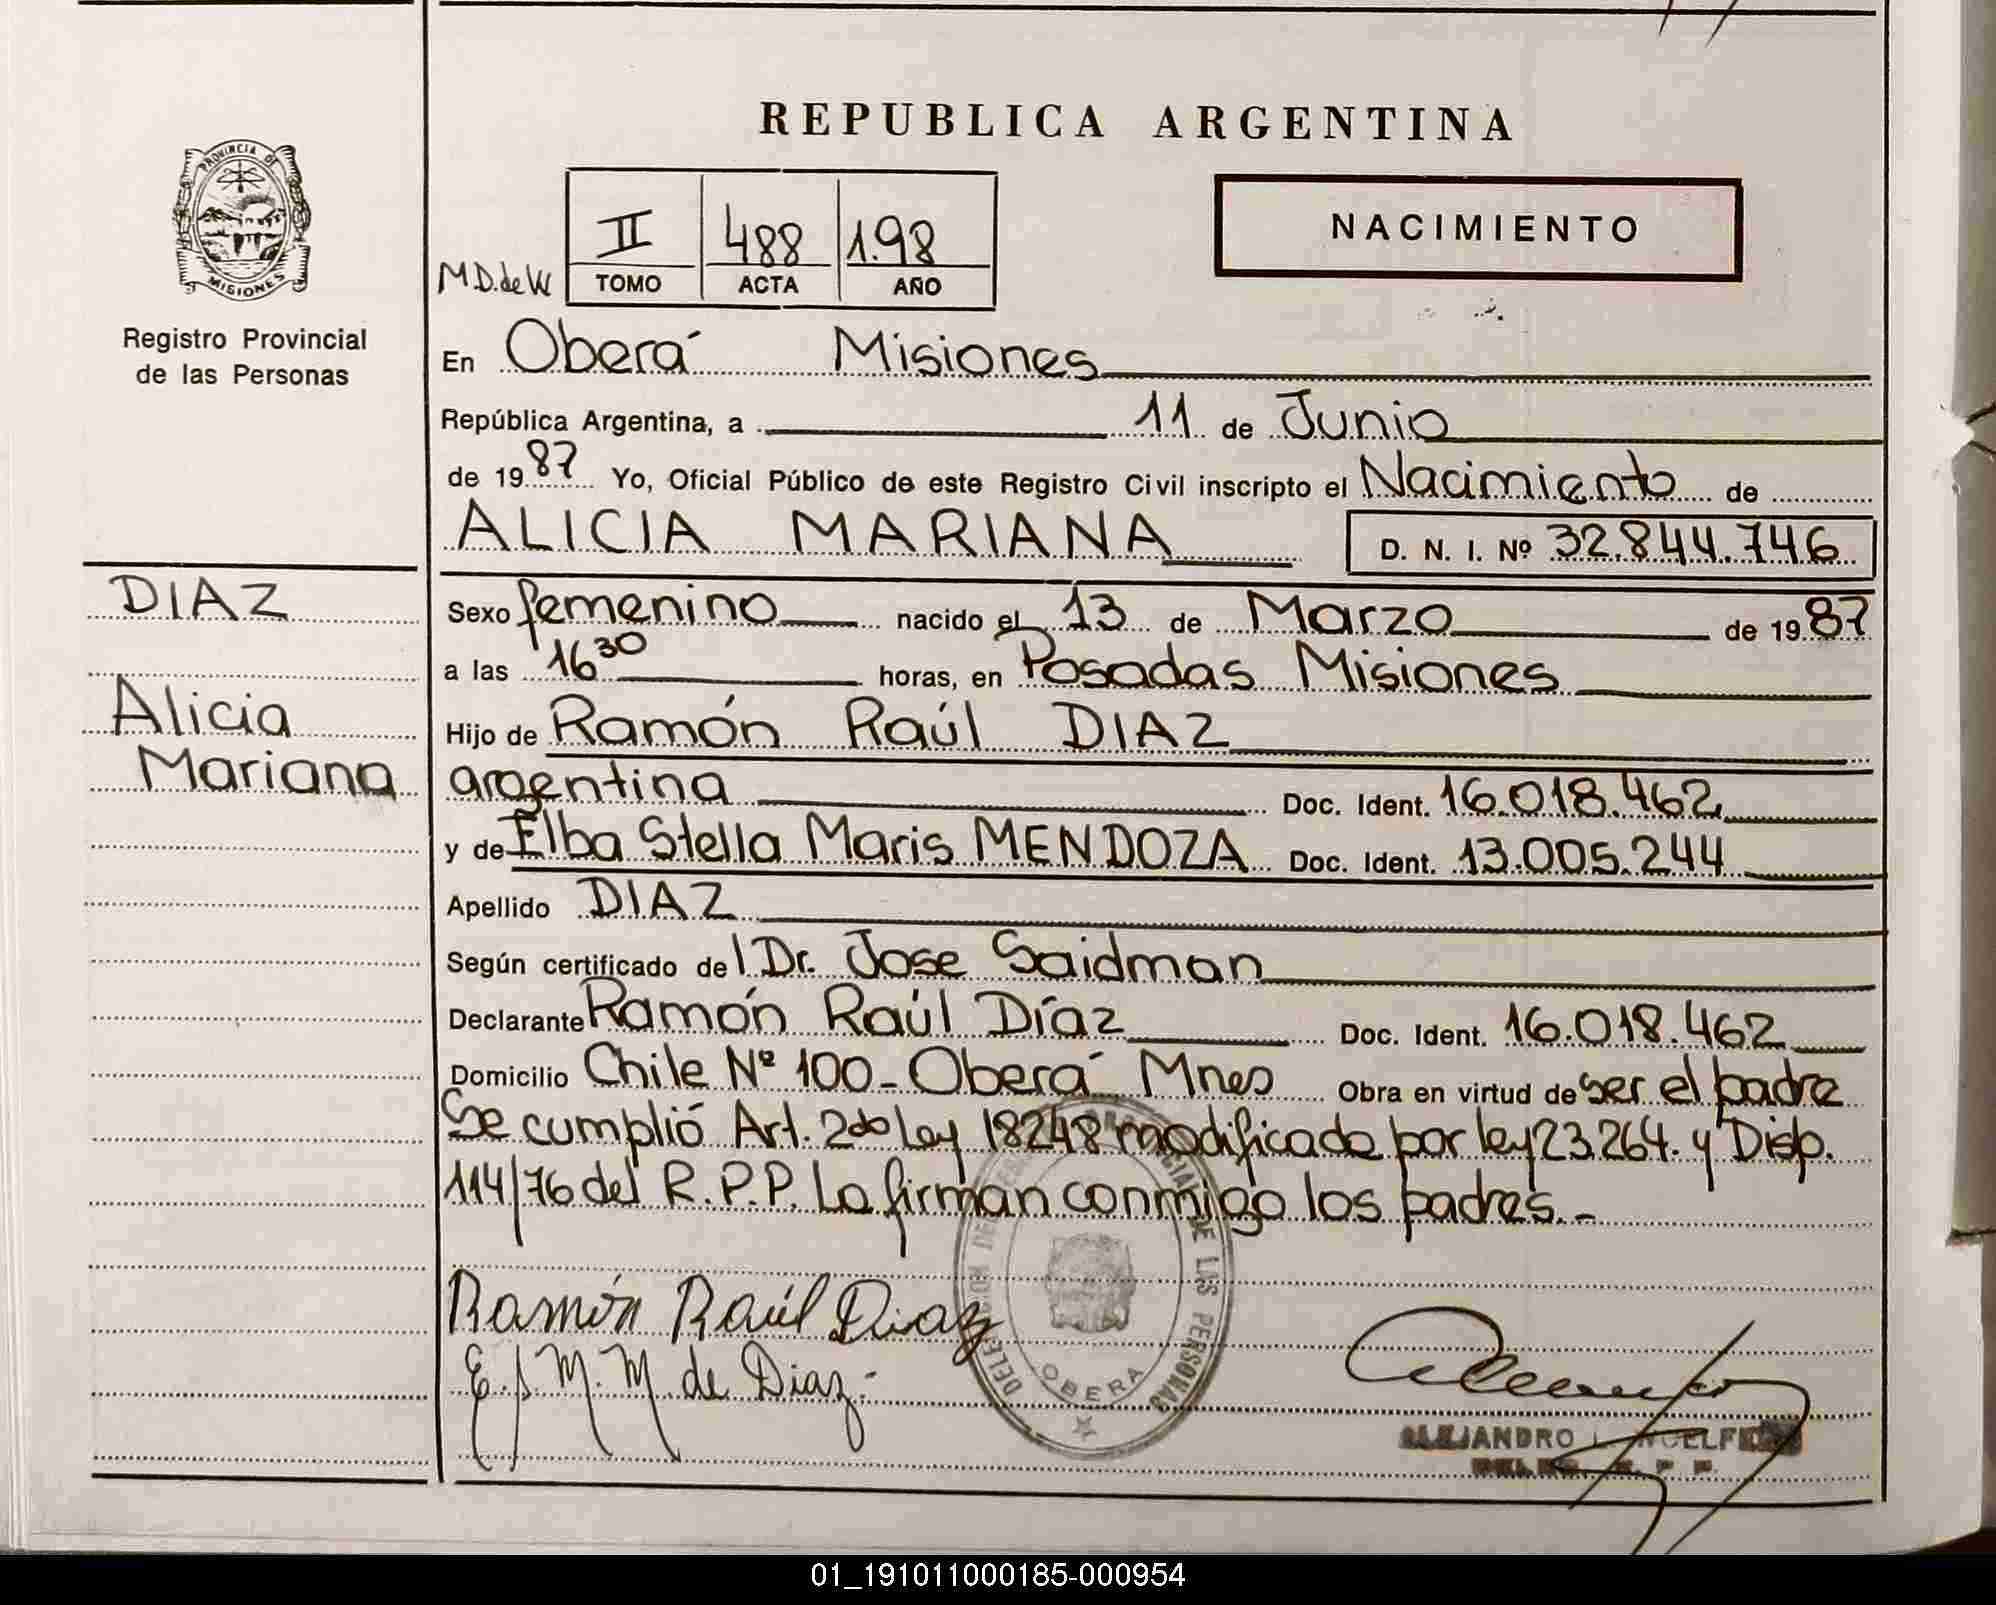 REPUBLICA ARGENTINA
PROVINCIA DE
MISIONES
Registro Provincial
de las Personas
NACIMIENTO
II 488 1.98
M.D.de W TOMO ACTA AÑO
En Oberá Misiones
República Argentina, a 11 de Junio
de 1987 Yo, Oficial Público de este Registro Civil inscripto el Nacimiento de
ALICIA MARIANA D. N. I. Nº 32.844.746
DIAZ
Alicia
Mariana
Sexo femenino nacido el 13 de Marzo de 1987
a las 16 30 horas, en Posadas Misiones
Hijo de Ramón Raúl DIAZ
argentina Doc. Ident. 16.018.462
y de Elba Stella Maris MENDOZA Doc. Ident. 13.005.244
Apellido DIAZ
Según certificado del Dr. Jose Saidman
Declarante Ramón Raúl Díaz Doc. Ident. 16.018.462
Domicilio Chile Nº 100 - Oberá Mnes Obra en virtud de ser el padre
Se cumplió Art. 2do Ley 18248 modificada por ley 23.264. y Disp.
114/76 del R.P.P. La firman conmigo los padres.-
Ramón Raúl Diaz
E.S.M.M. de Diaz.-
DE LAS PERSONAS
OBERA
ALEJANDRO
01_191011000185-000954